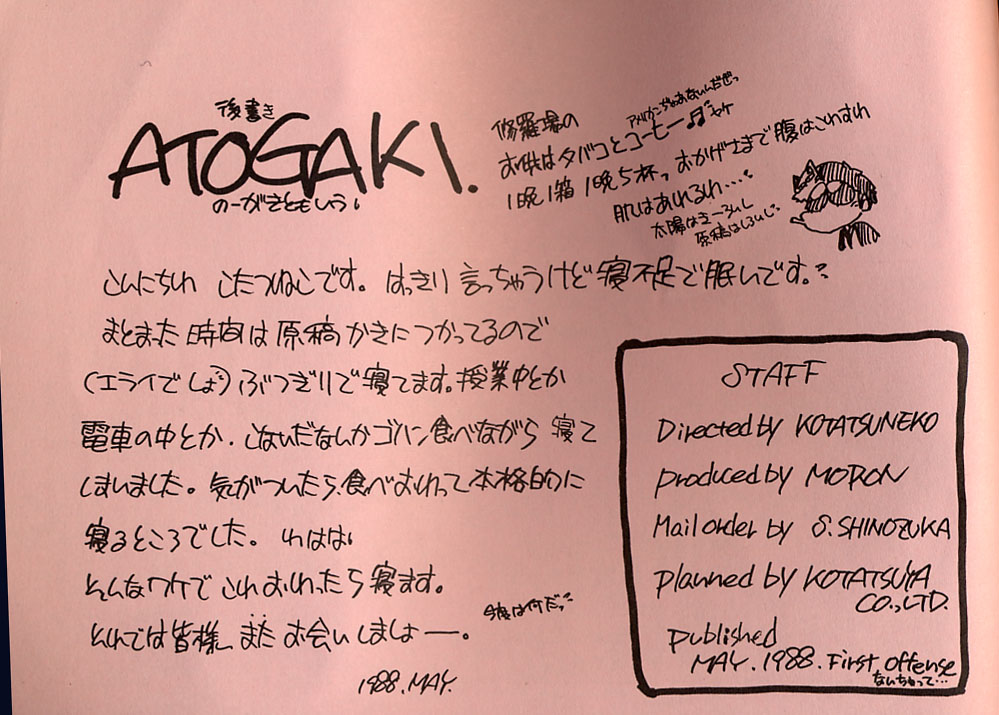 後書き
ATOGAKI.
のーがきともいう。
修羅場の
お供はタバコとコーヒー♬
アメリカンじゃあないんだぜっ
1晩1箱 1晩5杯っ おかげさまで腹はこわすわ
肌はあれるわ…
太陽はきーろいし
原稿はしろいし。
こんにちわ こたつねこです。はっきり言っちゃうけど寝不足で眠いです。
まとまった時間は原稿かきにつかってるので
(エライでしょ)ぶつぎりで寝てます。授業中とか
電車の中とか、こないだなんかゴハン食べながら寝て
しまいました。気がついたら、食べおわって本格的に
寝るところでした。わはは
そんなワケでこれおわったら寝ます。
それでは皆様、また お会いしましょ——。
今度は何だっ
1988.MAY.
STAFF
Directed by KOTATSUNEKO
produced by MORON
Mail order by S.SHINOZUKA
planned by KOTATSUYA
CO.,LTD.
published
MAY.1988.First offense
なんちゃって…